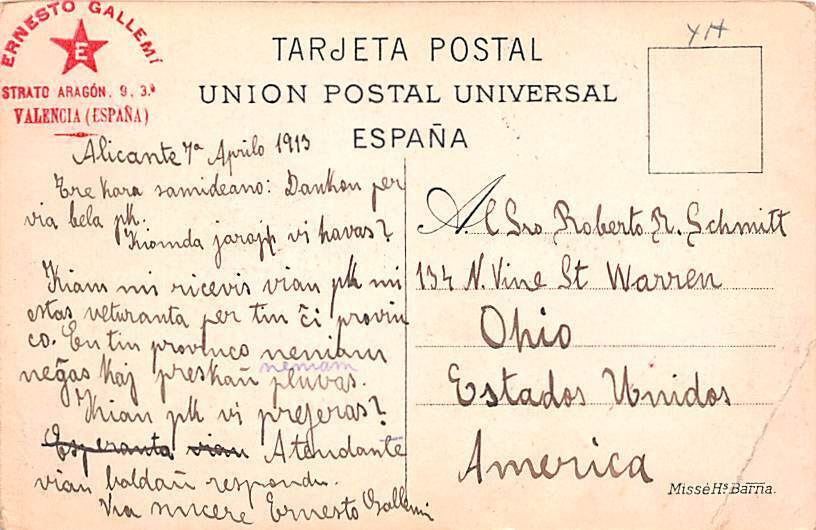 ERNESTO GALLEMÍ
E
STRATO ARAGÓN. 9. 3ª
VALENCIA (ESPAÑA)
YH
TARJETA POSTAL
UNION POSTAL UNIVERSAL
ESPAÑA
Alicante 7ª Aprilo 1913
Tre kara samideano: Dankon per
via bela pk.
Kiomda jarojn vi havas?
Kiam mi ricevis vian pk mi
estas veturanta per tin ĉi provin
co. En tin provinco neniam
neĝas kaj preskaŭ neniam pluvas.
Kian pk vi preferas?
Esperanta vian Atendante
vian baldaŭ respondu.
Via sincere Ernesto Gallemi
A.l Sro Roberto R. Schmitt
134 N. Vine St Warren
Ohio
Estados Unidos
America
Missé Hs. Barña.